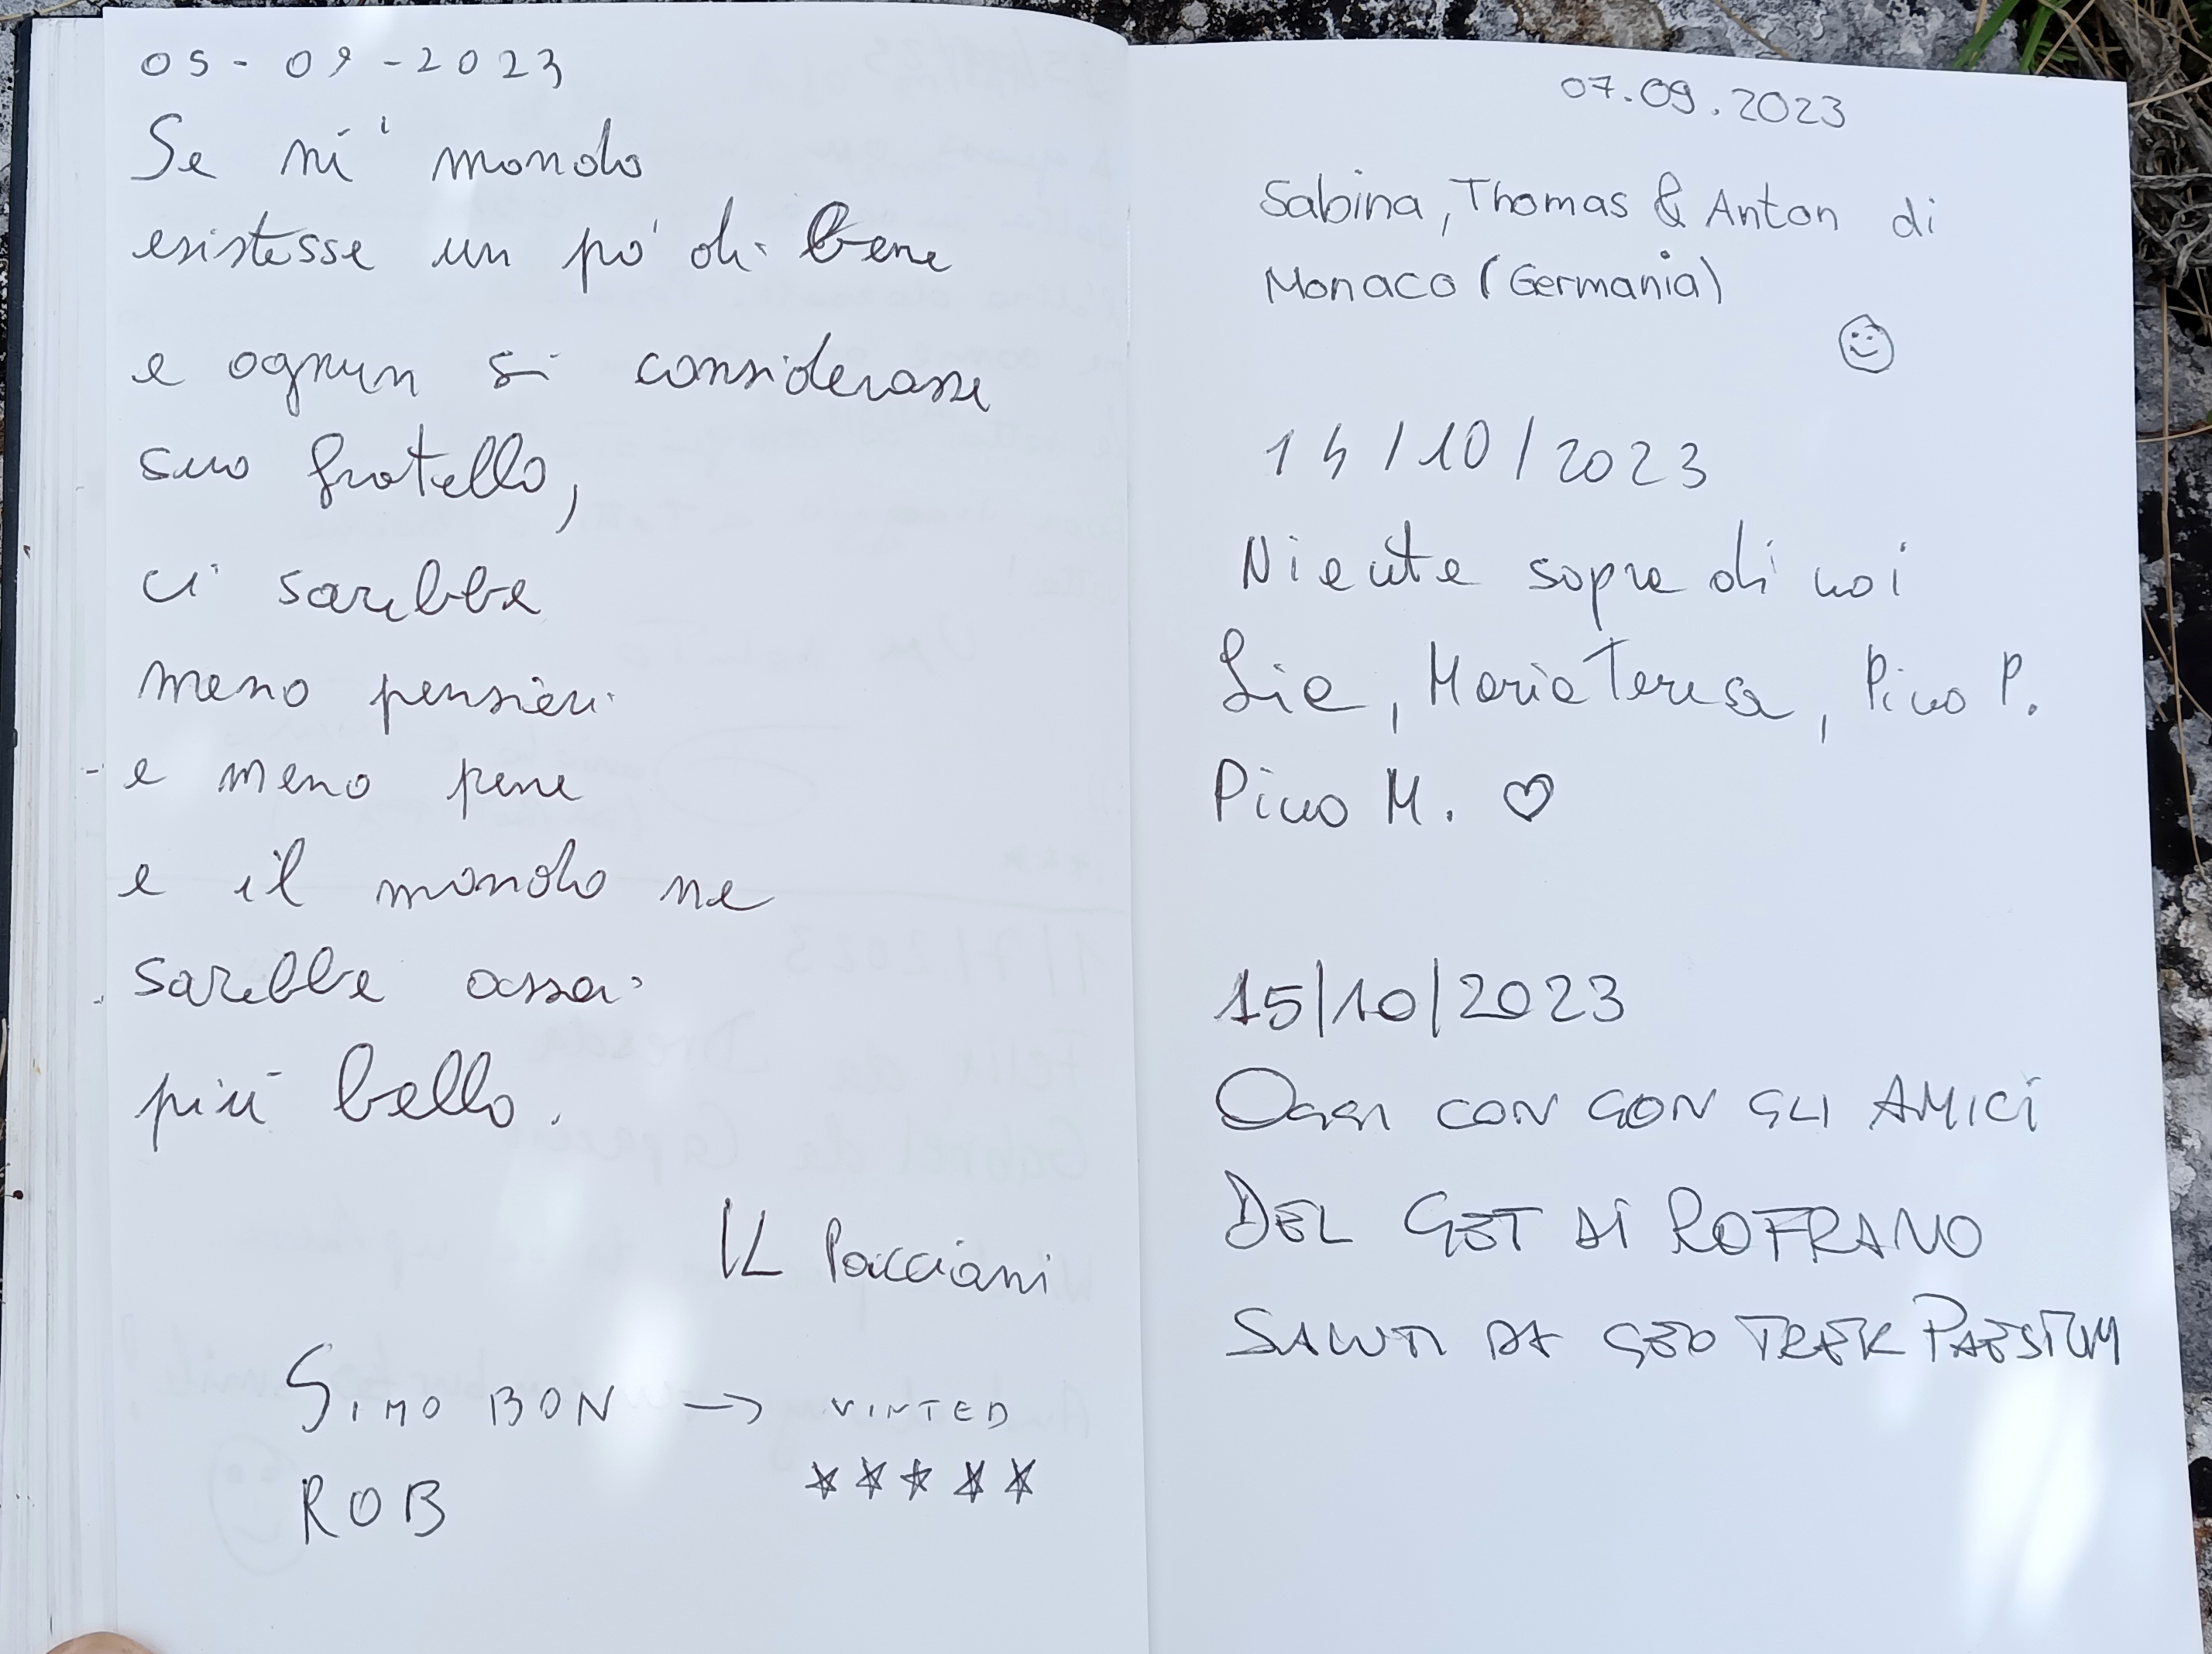 05-09-2023
Se ni' mondo
esistesse un po' di bene
e ognun si considerasse
suo fratello,
ci sarebbe
meno pensieri
e meno pene
e il mondo ne
sarebbe assai
più bello.
IL Pacciani
SIMO BON → VINTED
ROB ★★★★★
07.09.2023
Sabina, Thomas & Anton di
Monaco (Germania)
14/10/2023
Niente sopra di noi
Lia, Maria Teresa, Pino P.
Pino M. ♡
15/10/2023
OGGI CON CON GLI AMICI
DEL GET DI ROFRANO
SALUTI DA GEO TREK PAESTUM